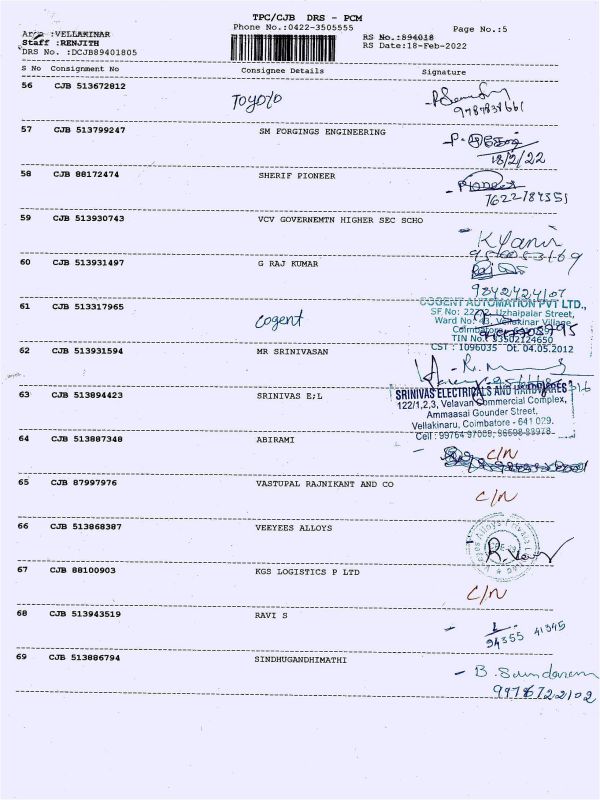 TPC/CJB DRS - PCM
Phone No.:0422-3505555
Page No.:5
Area :VELLAKINAR
Staff :RENJITH
DRS No. :DCJB89401805
RS No.:894018
RS Date:18-Feb-2022
S No Consignment No Consignee Details Signature
56 CJB 513672812 TOYOTO
57 CJB 513799247 SM FORGINGS ENGINEERING
18/2/22
58 CJB 88172474 SHERIF PIONEER
Pioneer
7622784351
59 CJB 513930743 VCV GOVERNEMTN HIGHER SEC SCHO
60 CJB 513931497 G RAJ KUMAR
9842424107
61 CJB 513317965 cogent
COGENT AUTOMATION PVT LTD.,
SF No: 227/2, Uzhaipalar Street,
Ward No: 43, Vellakinar Village,
Coimbatore
TIN No.: 33502124650
CST : 1096035 Dt. 04.05.2012
62 CJB 513931594 MR SRINIVASAN
63 CJB 513894423 SRINIVAS E;L
SRINIVAS ELECTRICALS AND HARDWARES
122/1,2,3, Velavan Commercial Complex,
Ammaasai Gounder Street,
Vellakinaru, Coimbatore - 641 029.
Cell : 99764 97069, 96598 83978
64 CJB 513887348 ABIRAMI C/N
65 CJB 87997976 VASTUPAL RAJNIKANT AND CO C/N
66 CJB 513868387 VEEYEES ALLOYS
67 CJB 88100903 KGS LOGISTICS P LTD C/N
68 CJB 513943519 RAVI S
94355 41345
69 CJB 513886794 SINDHUGANDHIMATHI
- B. Sundaram